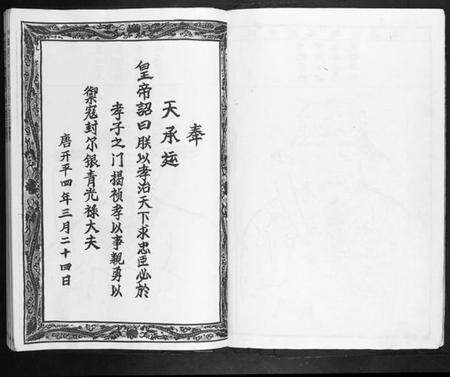 奉
天承运
皇帝詔曰朕以孝治天下求忠臣必於
孝子之门揭祯孝以事親勇以
禦寇封尔银青光禄大夫
唐开平四年三月二十四日